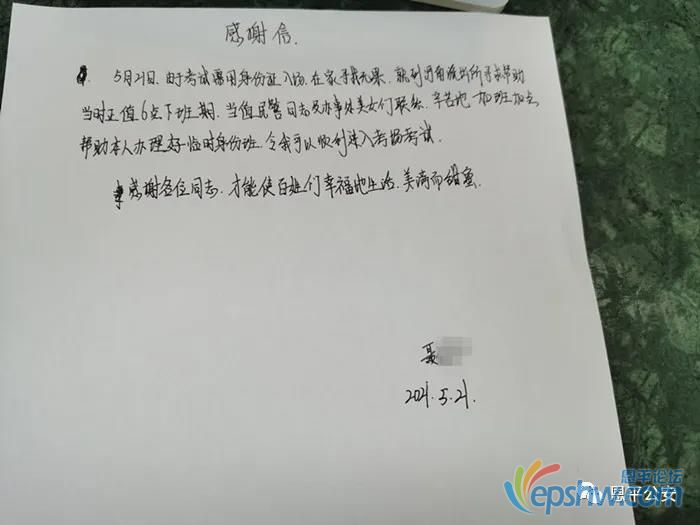 感谢信.
5月21日,由于考试需用身份证入场,在家寻找无果,就到河南派出所寻求帮助
当时正值6点下班期,当值民警同志及办事处美女们联系,辛苦地加班加点
帮助本人办理好临时身份证,令我可以顺利进入考场考试.
感谢各位同志,才能使百姓们幸福地生活,美满而甜蜜.
聂
2021.5.21.
恩平论坛
epshw.com
恩平公安